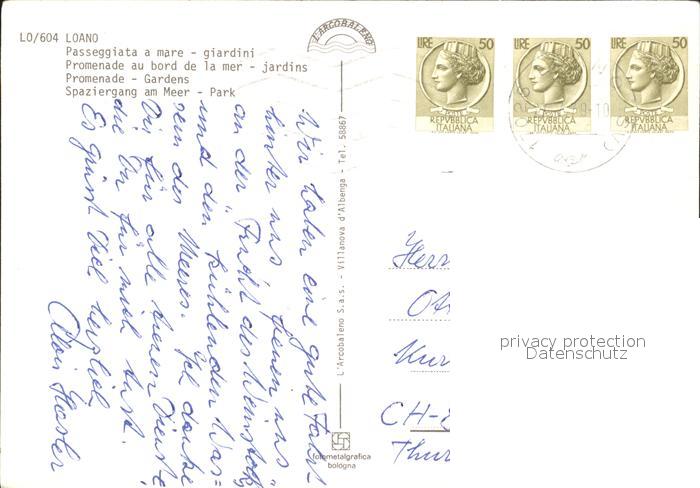 LO/604 LOANO
Passeggiata a mare - giardini
Promenade au bord de la mer - jardins
Promenade - Gardens
Spaziergang am Meer - Park
L'ARCOBALENO
L'Arcobaleno S.a.s. - Villanova d'Albenga - Tel. 58867
fotometalgrafica
bologna
LIRE 50
POSTE
REPVBBLICA
ITALIANA
LIRE 50
POSTE
REPVBBLICA
ITALIANA
LIRE 50
POSTE
REPVBBLICA
ITALIANA
Wir haben eine gute Fahrt
hinter uns freuen uns
an der Frucht des Weinstock
und den kühlenden Was=
sern des Meeres. Ich danke
Dir für alle treuen Dienste
die Du für mich tust.
Es grüsst Dich herzlich
Herr
Ot
Kur
CH-8
Thur
privacy protection
Datenschutz